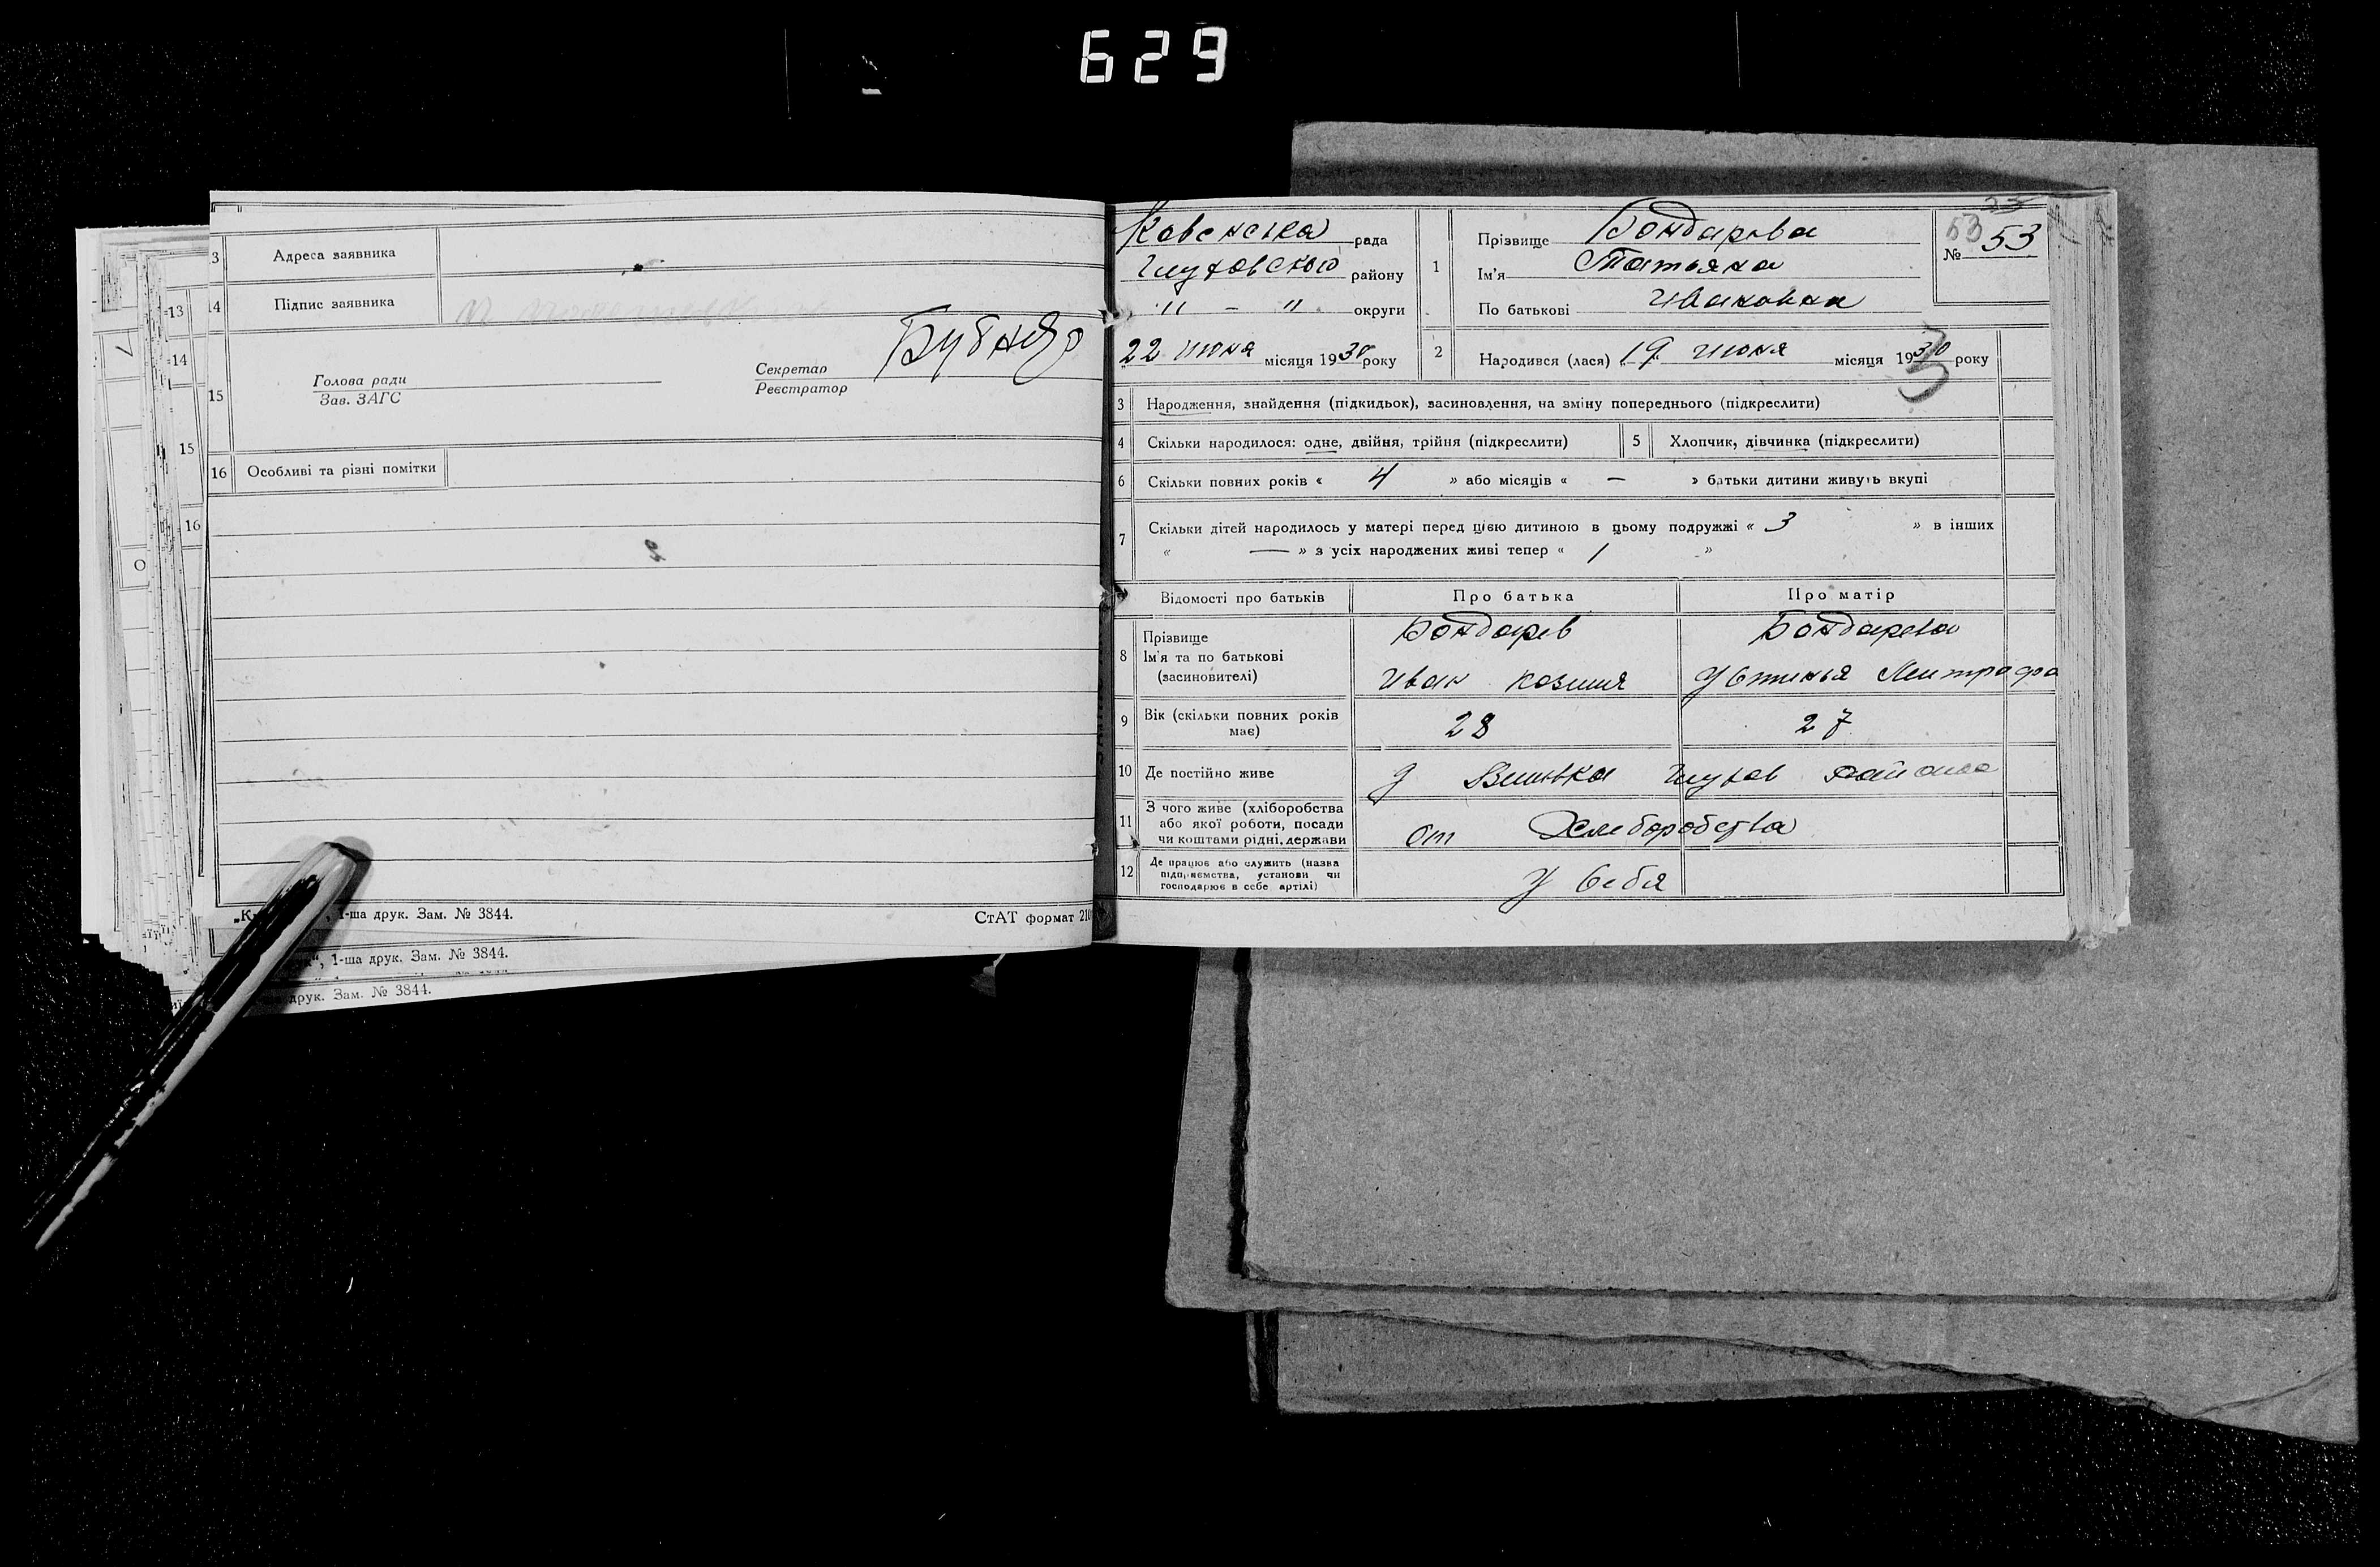 629
13
14
15
16
О
3 Адреса заявника
14 Підпис заявника
Бубнов
15 Голова ради Секретар
Зав. ЗАГС Реєстратор
16 Особливі та різні помітки
1-ша друк. Зам. № 3844.
СтАТ формат 210
1-ша друк. Зам. № 3844.
друк. Зам. № 3844.
рада
Глуховского району
" - " округи
22 июня місяця 1930 року
1 Прізвище Бондарева
Ім'я Татьяна
По батькові Ивановна
53
№ 53
2 Народився (лася) „ 19 июня місяця 1930 року
3
3 Народження, знайдення (підкидьок), засиновлення, на зміну попереднього (підкреслити)
4 Скільки народилося: одне, двійня, трійня (підкреслити) 5 Хлопчик, дівчинка (підкреслити)
6 Скільки повних років « 4 » або місяців « — » батьки дитини живуть вкупі
7 Скільки дітей народилось у матері перед цією дитиною в цьому подружжі « 3 » в інших
« — » з усіх народжених живі тепер « 1 »
Відомості про батьків Про батька Про матір
8 Прізвище Бондарев Бондарева
Ім'я та по батькові
(засиновителі) Иван Устинья
9 Вік (скільки повних років
має) 28 27
10 Де постійно живе Глухов района
11 З чого живе (хліборобства
або якої роботи, посади
чи коштами рідні, держави от Хлеборобства
12 Де працює або служить (назва
підприємства, установи чи
господарює в себе артілі) у себя